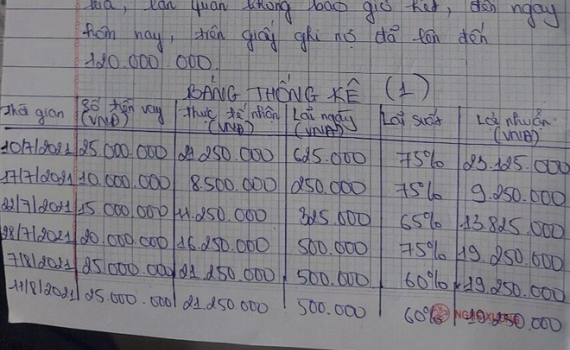 lần quẩn không bao giờ hết, đến ngày
hôm nay, trên giấy ghi nợ đã lên đến
120.000 000.
BẢNG THỐNG KÊ (1)
Thời gian Số tiền vay (VNĐ) Thực tế nhận (VNĐ) Lãi ngày (VNĐ) Lãi suất Lợi nhuận (VNĐ)
10/7/2021 25.000.000 21 250.000 625.000 75% 23.125.000
17/7/2021 10.000.000 8.500.000 250.000 75% 9.250.000
22/7/2021 15 000.000 11.250.000 325.000 65% 13.825.000
28/7/2021 20.000.000 16 250.000 500.000 75% 19.250.000
7/8/2021 25.000.000 21.250.000 500.000 60% 19.250.000
11/8/2021 25.000.000 21.250.000 500.000 60%